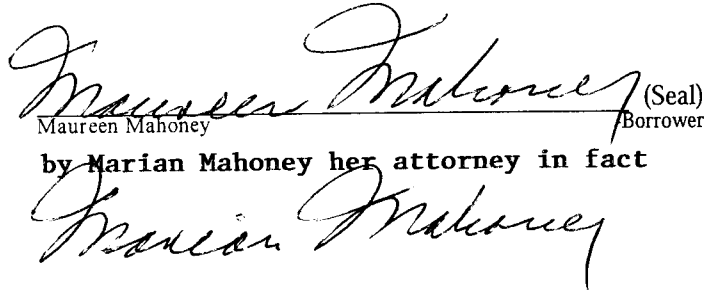 Maureen Mahoney (Seal)
Maureen Mahoney Borrower
by Marian Mahoney her attorney in fact
Marian Mahoney